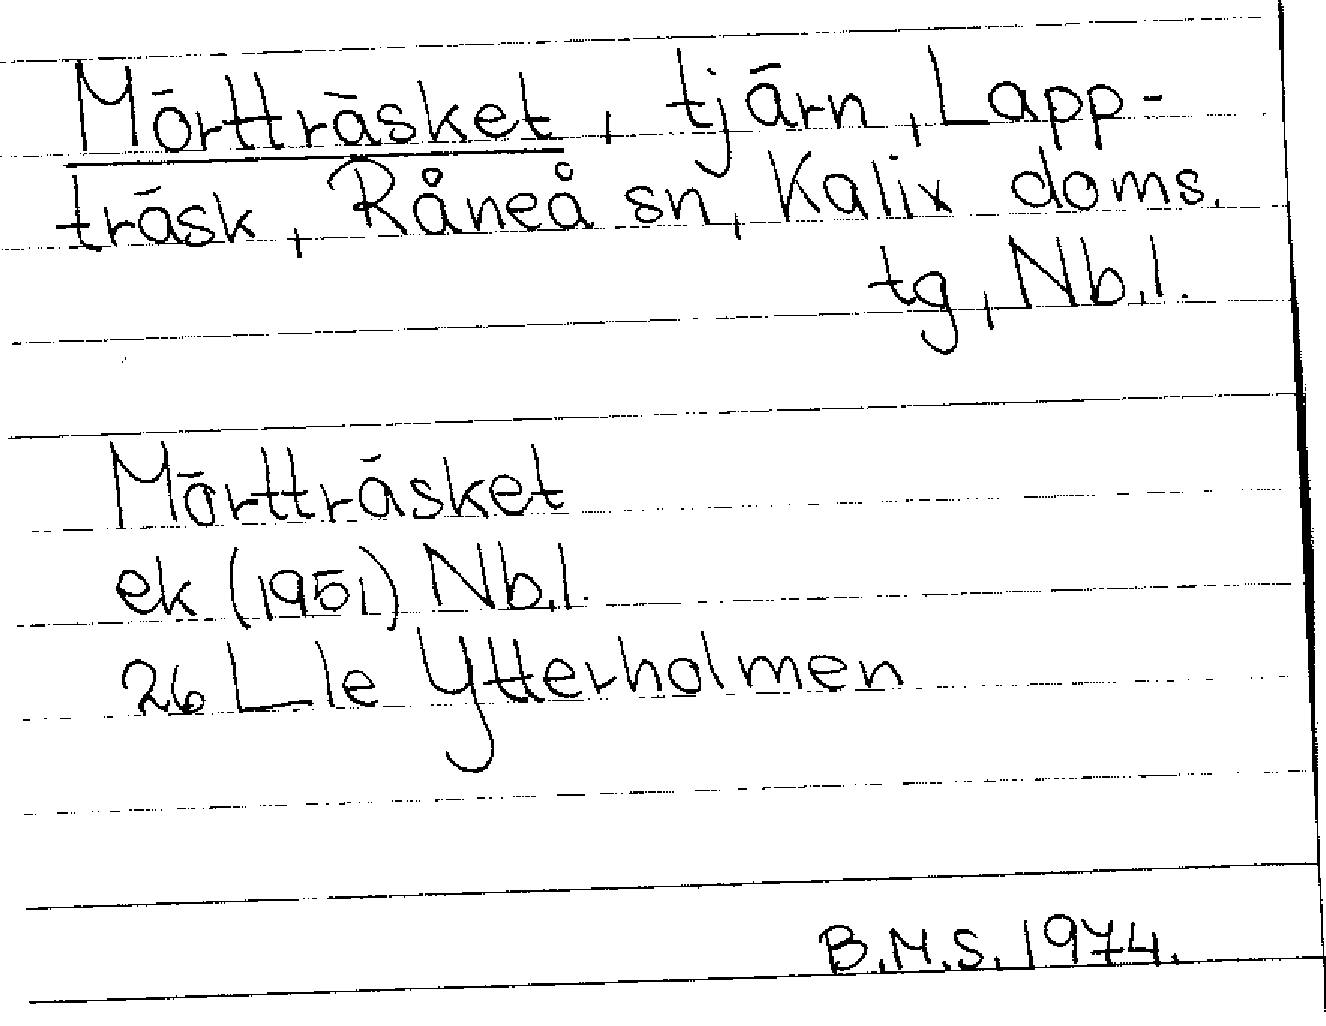 Mörtträsket, tjärn, Lapp-
träsk, Råneå sn, Kalix doms.
tg, Nb.l.
Mörtträsket
ek (1951) Nb.l.
26 L le Ytterholmen
B.M.S. 1974.